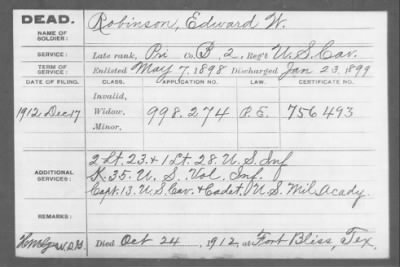 DEAD.
Robinson, Edward W.
NAME OF SOLDIER:
SERVICE:
Late rank, Pri Co. B, 2, Reg't U.S. Cav.
TERM OF SERVICE:
Enlisted May 7, 1898 Discharged Jan 23, 1899
DATE OF FILING. CLASS. APPLICATION NO. LAW. CERTIFICATE NO.
Invalid,
1912 Dec 17 Widow, 998.274 P.E. 756493
Minor,
ADDITIONAL SERVICES:
2 Lt. 23. & 1 Lt. 28. U.S. Inf
K. 35. U. S. Vol. Inf.
Capt. 13. U.S. Cav. & Cadet, U.S. Mil. Acady.
REMARKS:
Died Oct 24, 1912, at Fort Bliss, Tex.